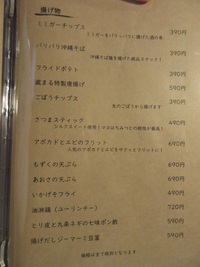 揚げ物
ミミガーチップス 390円
ミミガーをパリッパリに揚げた酒の肴
パリパリ沖縄そば 390円
沖縄そば麺を揚げた絶品スナック!
フライドポテト 390円
蔵まる特製唐揚げ 590円
ごぼうチップス 390円
生のごぼうから揚げます
さつまスティック 490円
アボカドとエビのフリット 690円
人気のアボカドとエビをサクッとフリットに!
もずくの天ぷら 690円
あおさの天ぷら 690円
いかげそフライ 490円
油淋鶏(ユーリンチー) 720円
とり皮と九条ネギの七味ポン酢 590円
揚げだしジーマーミ豆腐 590円